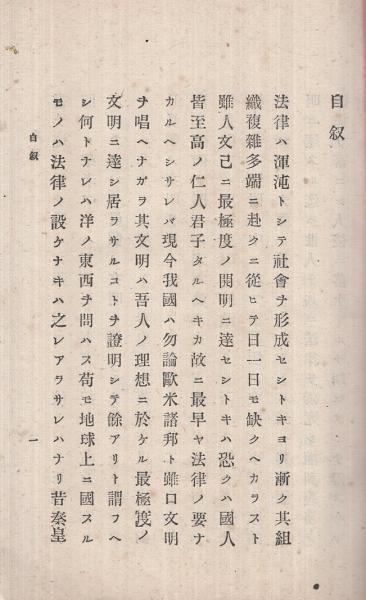 自叙
法律ハ渾沌トシテ社會ヲ形成セシトキヨリ漸ク其組
織複雜多端ニ赴クニ從ヒテ日一日モ缺クヘカラスト
雖人文已ニ最極度ノ開明ニ達セシトキハ恐クハ國人
皆至高ノ仁人君子タルヘキカ故ニ最早ヤ法律ノ要ナ
カルヘシサレバ現今我國ハ勿論歐米諸邦ト雖口文明
ヲ唱ヘナガラ其文明ハ吾人ノ理想ニ於ケル最極度ノ
文明ニ達シ居ラサルコトヲ證明シテ餘アリト謂フヘ
シ何トナレハ洋ノ東西ヲ問ハス苟モ地球上ニ國スル
モノハ法律ノ設ケナキハ之レアラサレハナリ昔秦皇
自叙
一